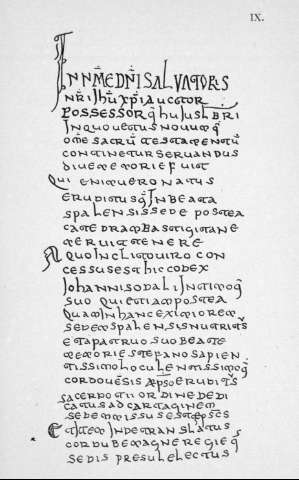 IX.
IN NM̄E DN̄I SALVATORIS
NR̄I IHŪ XPI AUCTOR
POSSESSORQ: HUJUS LIBRI
IN QUO VETUS NOVUMQ:
OM̄E SACRŪ TESTAMENTŪ
CONTINETUR SERVANDUS
DIVE MEMORIE FUIT
QUI ENIM VERO NATUS
ERUDITUSQ: IN BEATA
SPALENSI SEDE POSTEA
CATEDRAM BASTIGITANE
MERUIT TENERE
A QUO INCLITO VIRO CON
CESSUS EST HIC CODEX
IOHANNI SODALI INTIMOQ:
SUO QUI ETIAM POSTEA
QUAM IN HANC EXIMIOREM
SEDEM SPALENSIS NUTRITUS
ET A PATRUO SUO BEATE
MEMORIE STEFANO SAPIEN
TISSIMO LOCULENTISSIMOQ:
CORDOVĒSIS ÆPSO ERUDITS
SACERDOTII ORDINE DEDI
CATUS AD CARTAGINEM
SEDEM MISSUS EST EPSCS
ET ITEM INDE TRANSLATUS
CORDUBE MAGNE REGIE Q:
SEDIS PRESUL ELECTUS